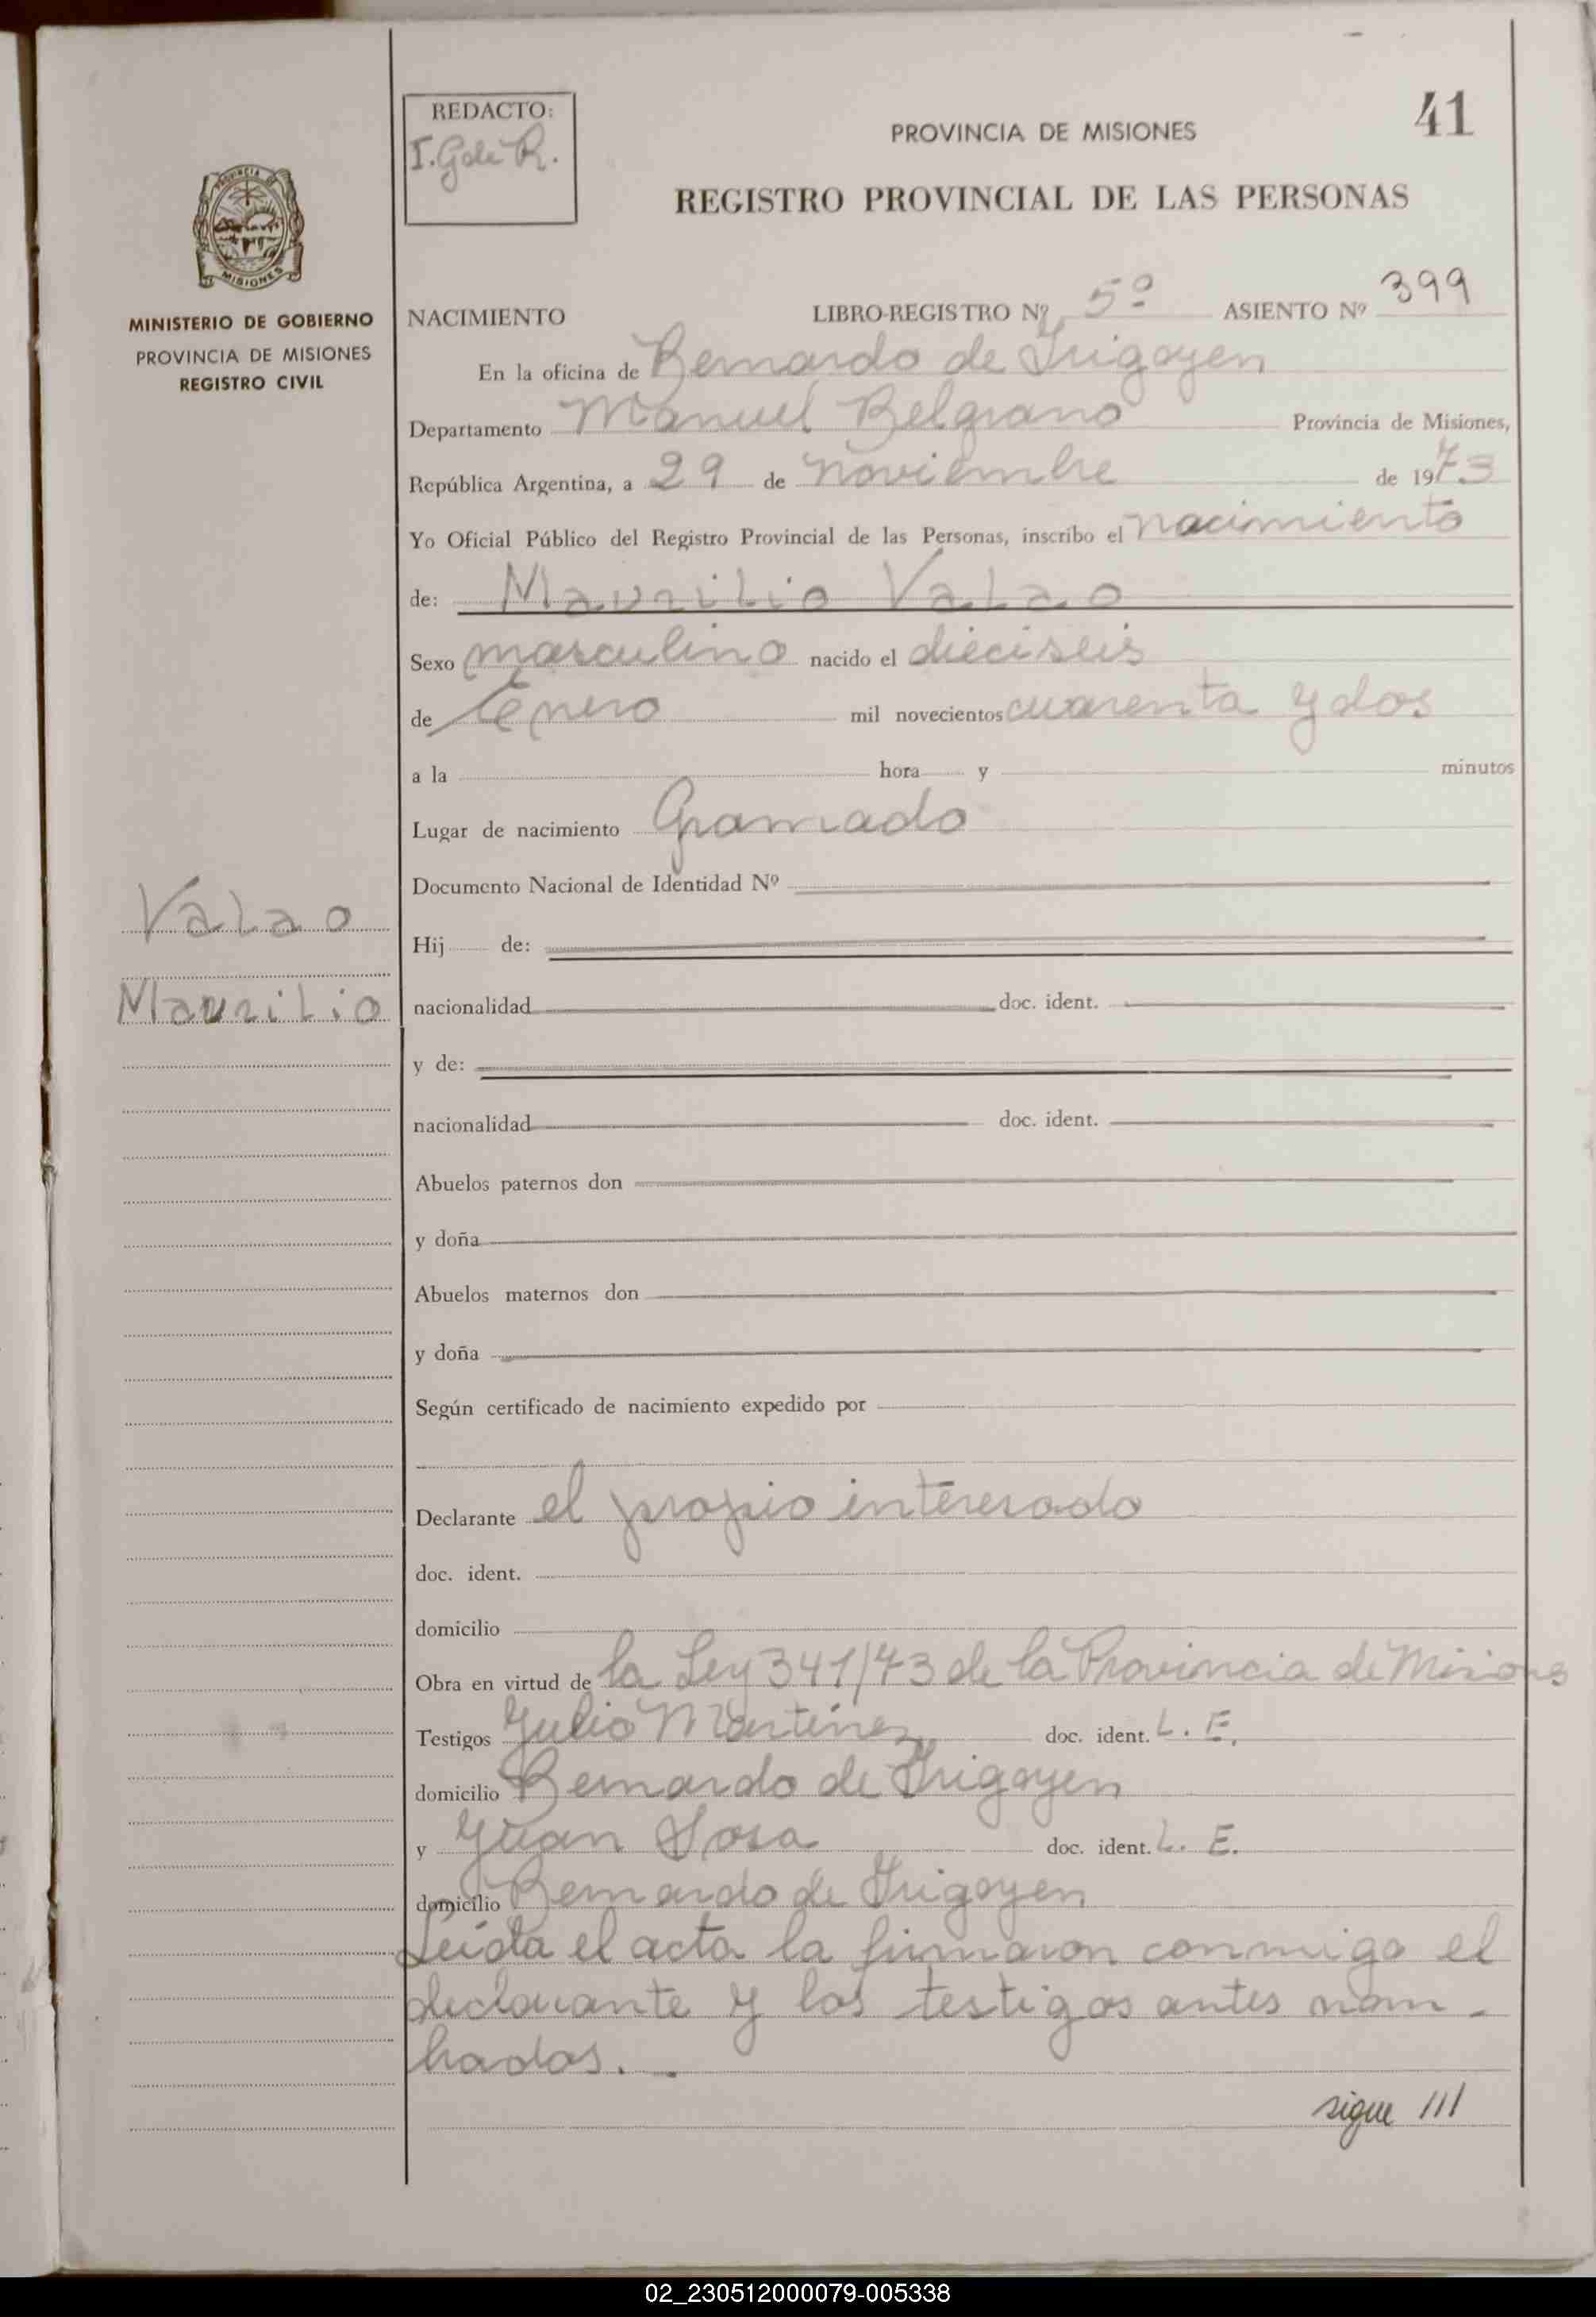 REDACTO:
I. Gdle R.
PROVINCIA DE MISIONES
41
REGISTRO PROVINCIAL DE LAS PERSONAS
PROVINCIA DE
MISIONES
MINISTERIO DE GOBIERNO
PROVINCIA DE MISIONES
REGISTRO CIVIL
NACIMIENTO LIBRO-REGISTRO Nº 5º ASIENTO Nº 399
En la oficina de Bernardo de Irigoyen
Departamento Manuel Belgrano Provincia de Misiones,
República Argentina, a 29 de noviembre de 1973
Yo Oficial Público del Registro Provincial de las Personas, inscribo el nacimiento
de: Maurilio Valao
Sexo masculino nacido el dieciseis
de Enero mil novecientos cuarenta y dos
a la hora y minutos
Lugar de nacimiento Gramado
Documento Nacional de Identidad Nº
Valao
Hij de:
Maurilio
nacionalidad doc. ident.
y de:
nacionalidad doc. ident.
Abuelos paternos don
y doña
Abuelos maternos don
y doña
Según certificado de nacimiento expedido por
Declarante el propio interesado
doc. ident.
domicilio
Obra en virtud de la Ley 341/73 de la Provincia de Misiones
Testigos Julio Martinez doc. ident. L. E.
domicilio Bernardo de Irigoyen
y Juan Sosa doc. ident. L. E.
domicilio Bernardo de Irigoyen
Leida el acta la firmaron conmigo el
declarante y los testigos antes nom-
brados.
sigue ///
02_230512000079-005338